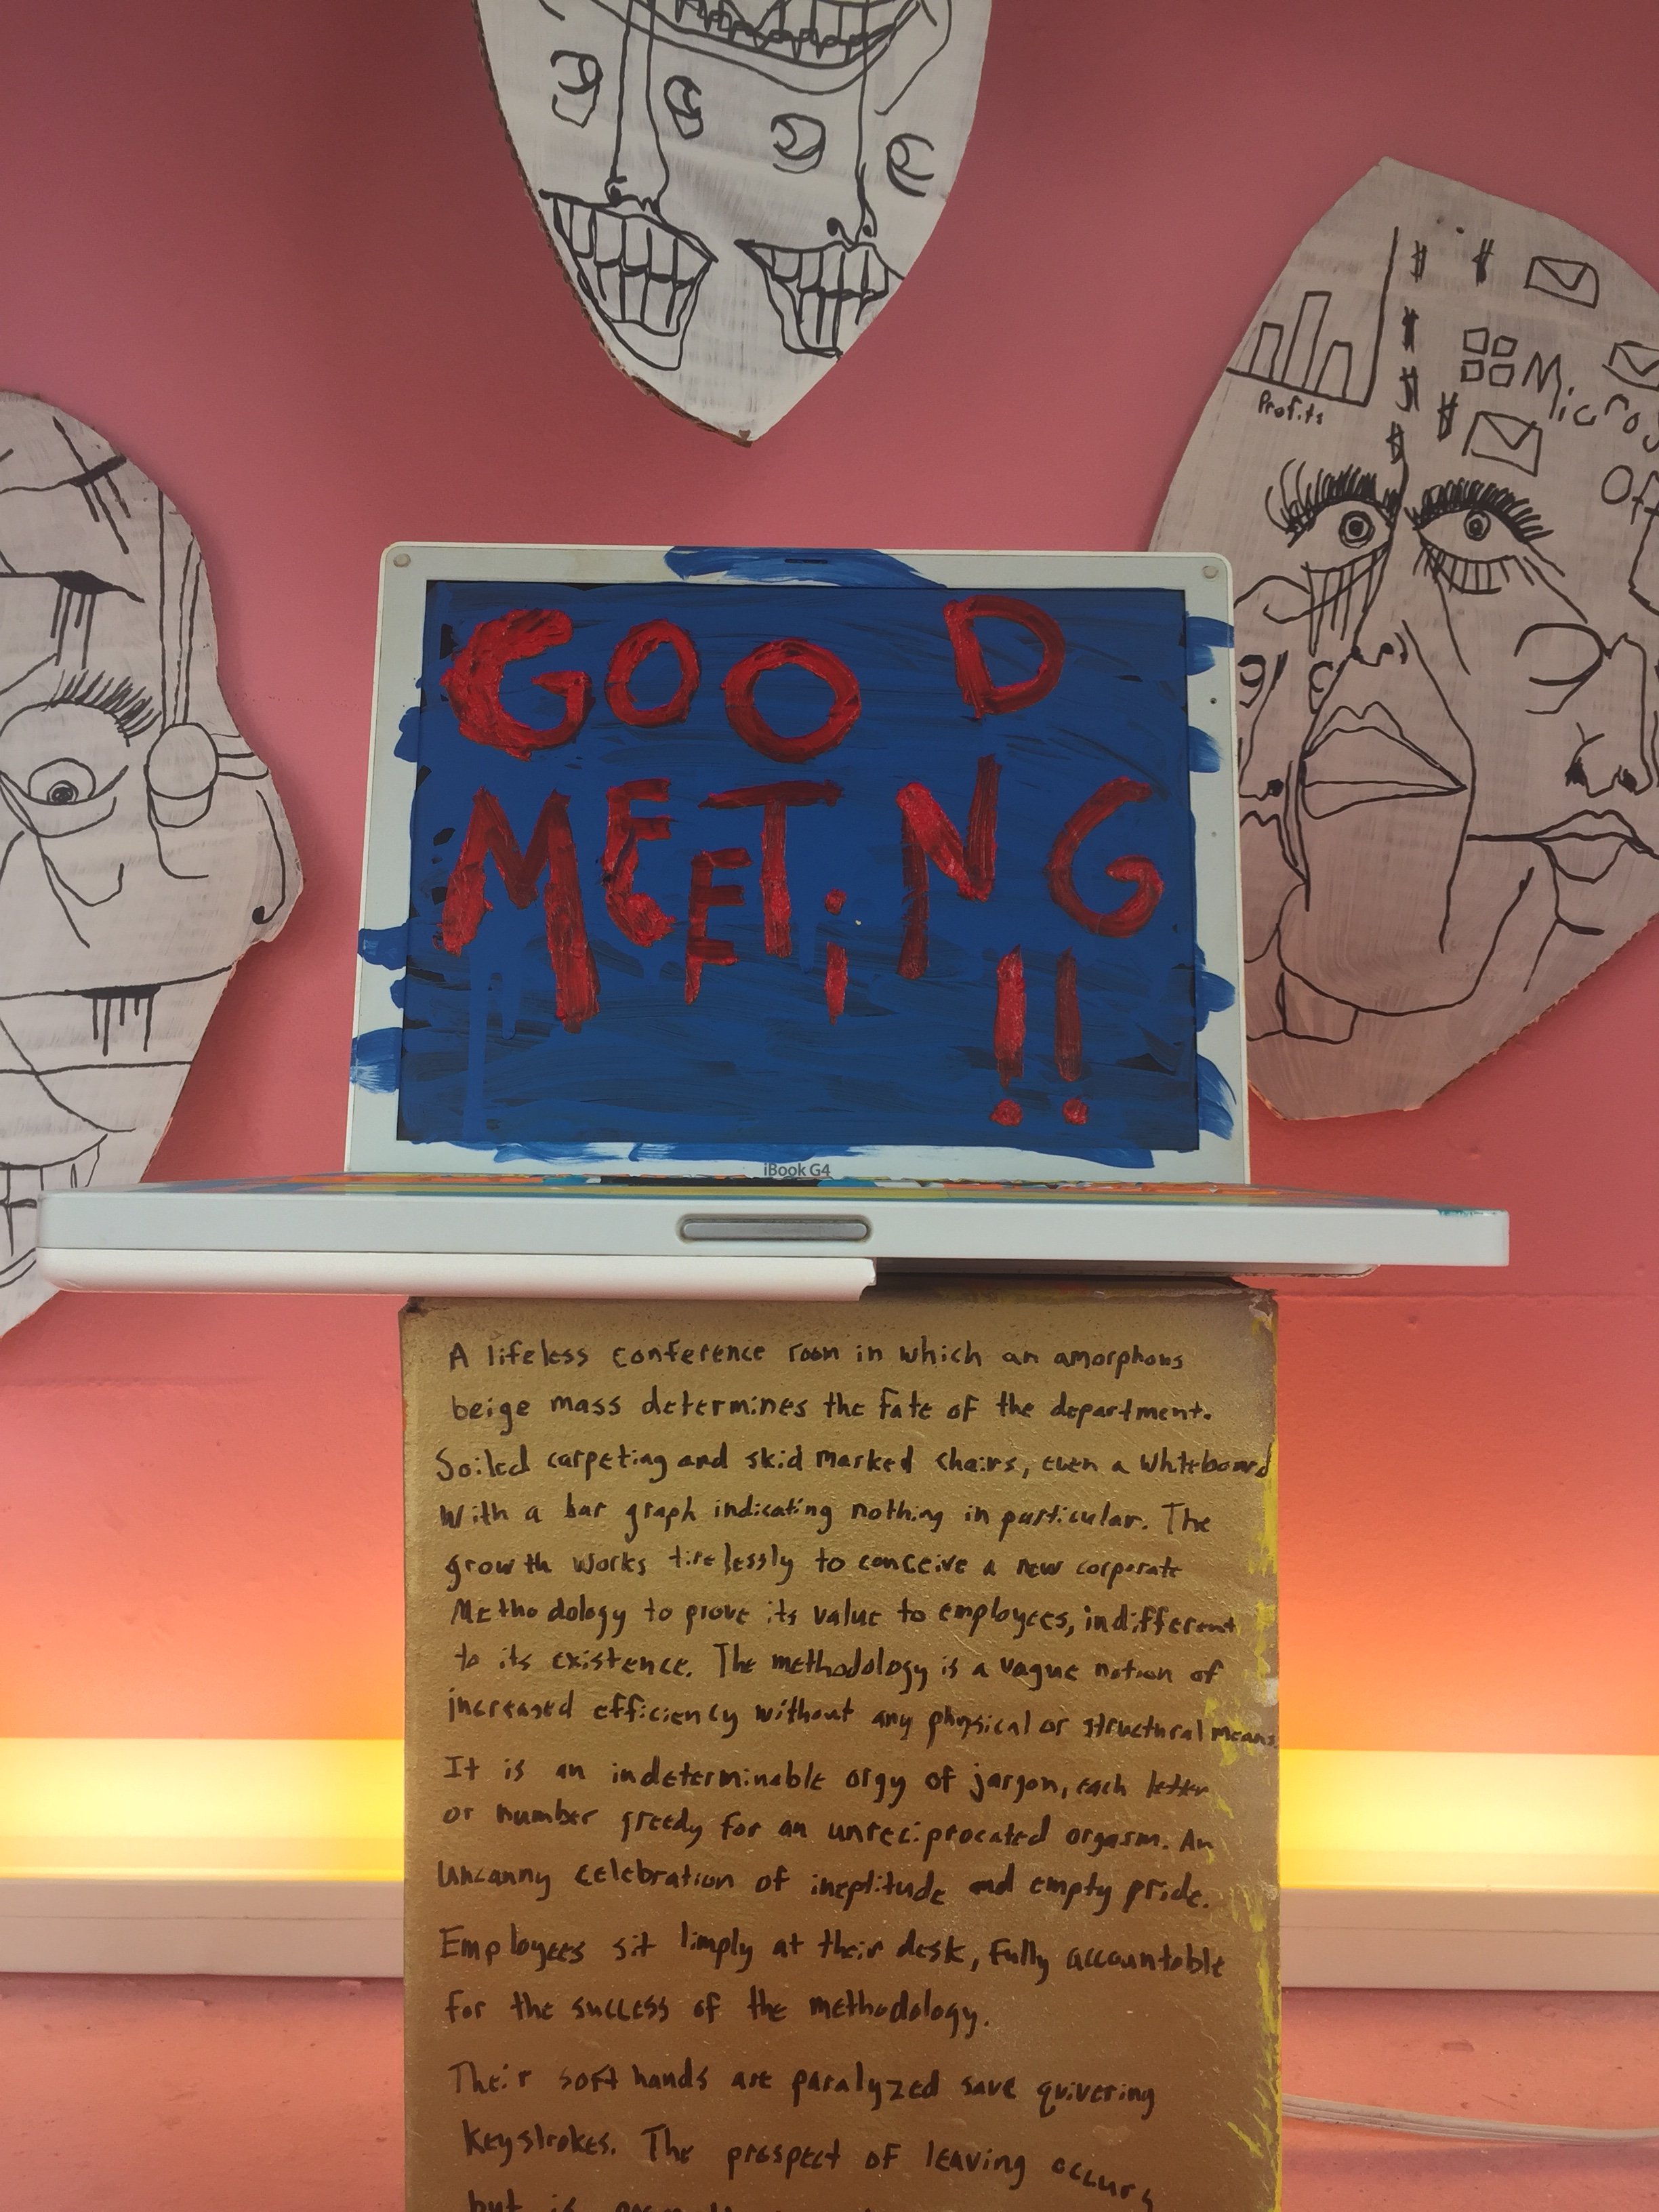 $ $
$
$ $
$
Profits
Micros
Off
GOOD
MEETiNG
!!
iBook G4
A lifeless conference room in which an amorphous
beige mass determines the fate of the department.
Soiled carpeting and skid marked chairs, even a whiteboard
With a bar graph indicating nothing in particular. The
growth works tirelessly to conceive a new corporate
Methodology to prove its value to employees, indifferent
to its existence. The methodology is a vague notion of
increased efficiency without any physical or structural means.
It is an indeterminable orgy of jargon, each letter
or number greedy for an unreciprocated orgasm. An
Uncanny celebration of ineptitude and empty pride.
Employees sit limply at their desk, fully accountable
for the success of the methodology.
Their soft hands are paralyzed save quivering
Keystrokes. The prospect of leaving occurs
but is